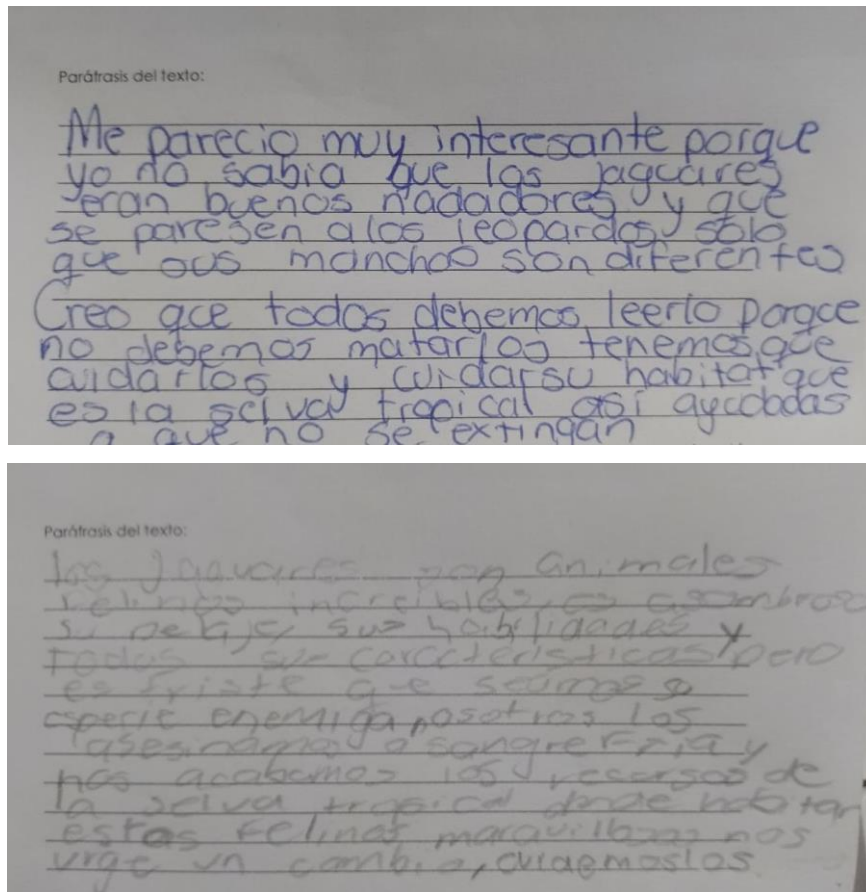 Paráfrasis del texto:
Me parecio muy interesante porque
yo no sabia que los jaguares
eran buenos nadadores y que
se paresen a los leopardos solo
que sus manchas son diferentes
Creo que todos debemos leerlo porque
no debemos matarlos tenemos que
cuidarlos y cuidar su habitat que
es la selva tropical asi
a que no se extingan
Paráfrasis del texto:
los jaguares son animales
felinos increibles, es asombroso
su pelaje, sus habilidades y
todas sus caracteristicas, pero
es triste que seamos su
especie enemiga, nosotros los
asesinamos a sangre fria y
nos acabamos los recursos de
la selva tropical donde habitan
estos felinos maravillosos nos
urge un cambio, cuidemoslos